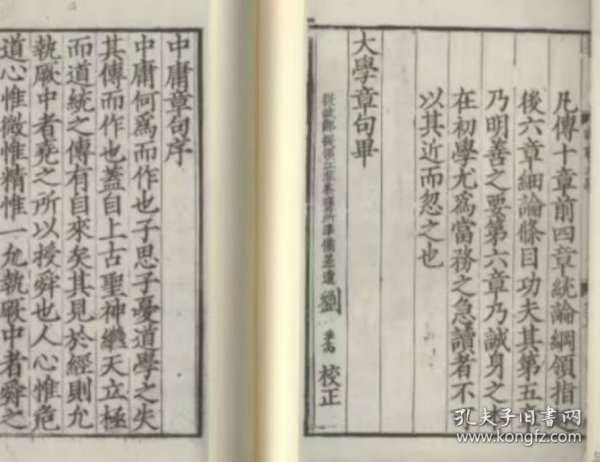 凡傳十章前四章統論綱領指
後六章細論條目功夫其第五
乃明善之要第六章乃誠身之
在初學尤爲當務之急讀者不
以其近而忽之也
大學章句畢
劉 校正
中庸章句序
中庸何爲而作也子思子憂道學之失
其傳而作也蓋自上古聖神繼天立極
而道統之傳有自來矣其見於經則允
執厥中者堯之所以授舜也人心惟危
道心惟微惟精惟一允執厥中者舜之
孔夫子旧书网
www.kongfz.com